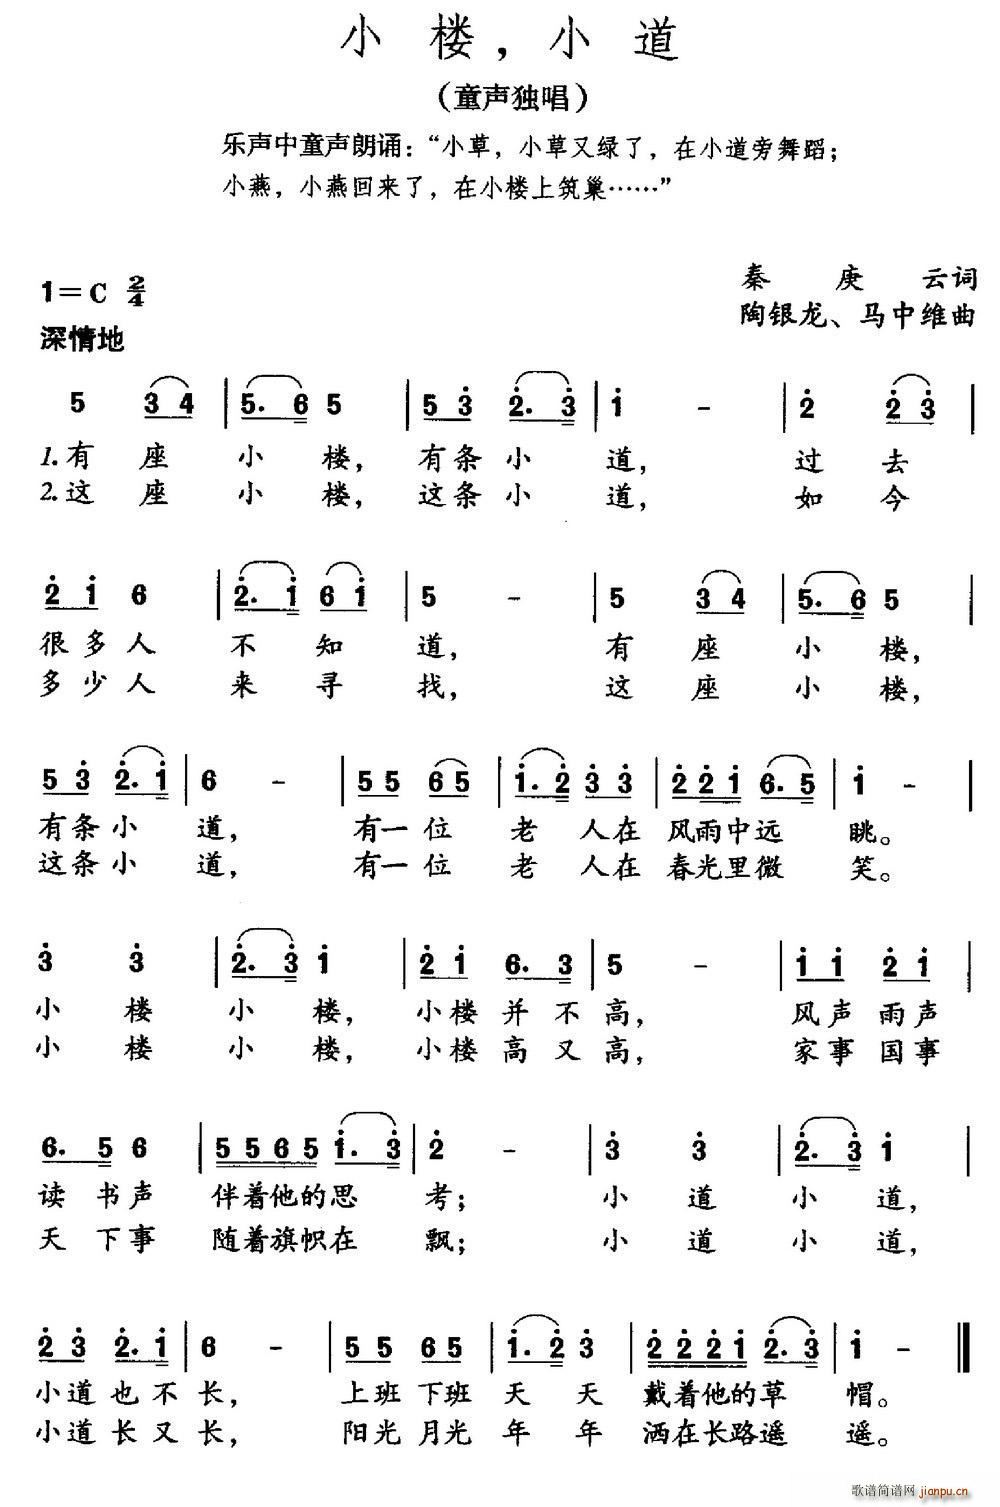 小楼，小道
（童声独唱）
乐声中童声朗诵：“小草，小草又绿了，在小道旁舞蹈；
小燕，小燕回来了，在小楼上筑巢……”
1=C 2/4
秦庚云词
深情地
陶银龙、马中维曲
5 3 4 | 5. 6 5 | 5 3̇ 2̇. 3̇ | 1̇ - | 2̇ 2̇ 3̇ |
1.有座小楼，有条小道，过去
2.这座小楼，这条小道，如今
2̇ 1̇ 6 | 2̇. 1̇ 6 1̇ | 5 - | 5 3 4 | 5. 6 5 |
很多人不知道，有座小楼，
多少人来寻找，这座小楼，
5 3̇ 2̇. 1̇ | 6 - | 5 5 6 5 | 1̇. 2̇ 3̇ 3̇ | 2̇ 2̇ 1̇ 6. 5 | 1̇ - |
有条小道，有一位老人在风雨中远眺。
这条小道，有一位老人在春光里微笑。
3̇ 3̇ | 2̇. 3̇ 1̇ | 2̇ 1̇ 6. 3 | 5 - | 1̇ 1̇ 2̇ 1̇ |
小楼小楼，小楼并不高，风声雨声
小楼小楼，小楼高又高，家事国事
6. 5 6 | 5 5 6 5 1̇. 3̇ | 2̇ - | 3̇ 3̇ | 2̇. 3̇ 1̇ |
读书声伴着他的思考；小道小道，
天下事随着旗帜在飘；小道小道，
2̇ 3̇ 2̇. 1̇ | 6 - | 5 5 6 5 | 1̇. 2̇ 3̇ | 2̇ 2̇ 2̇ 1̇ 2̇. 3̇ | 1̇ - ‖
小道也不长，上班下班天天戴着他的草帽。
小道长又长，阳光月光年年洒在长路遥遥。
歌谱简谱网
jianpu.cn